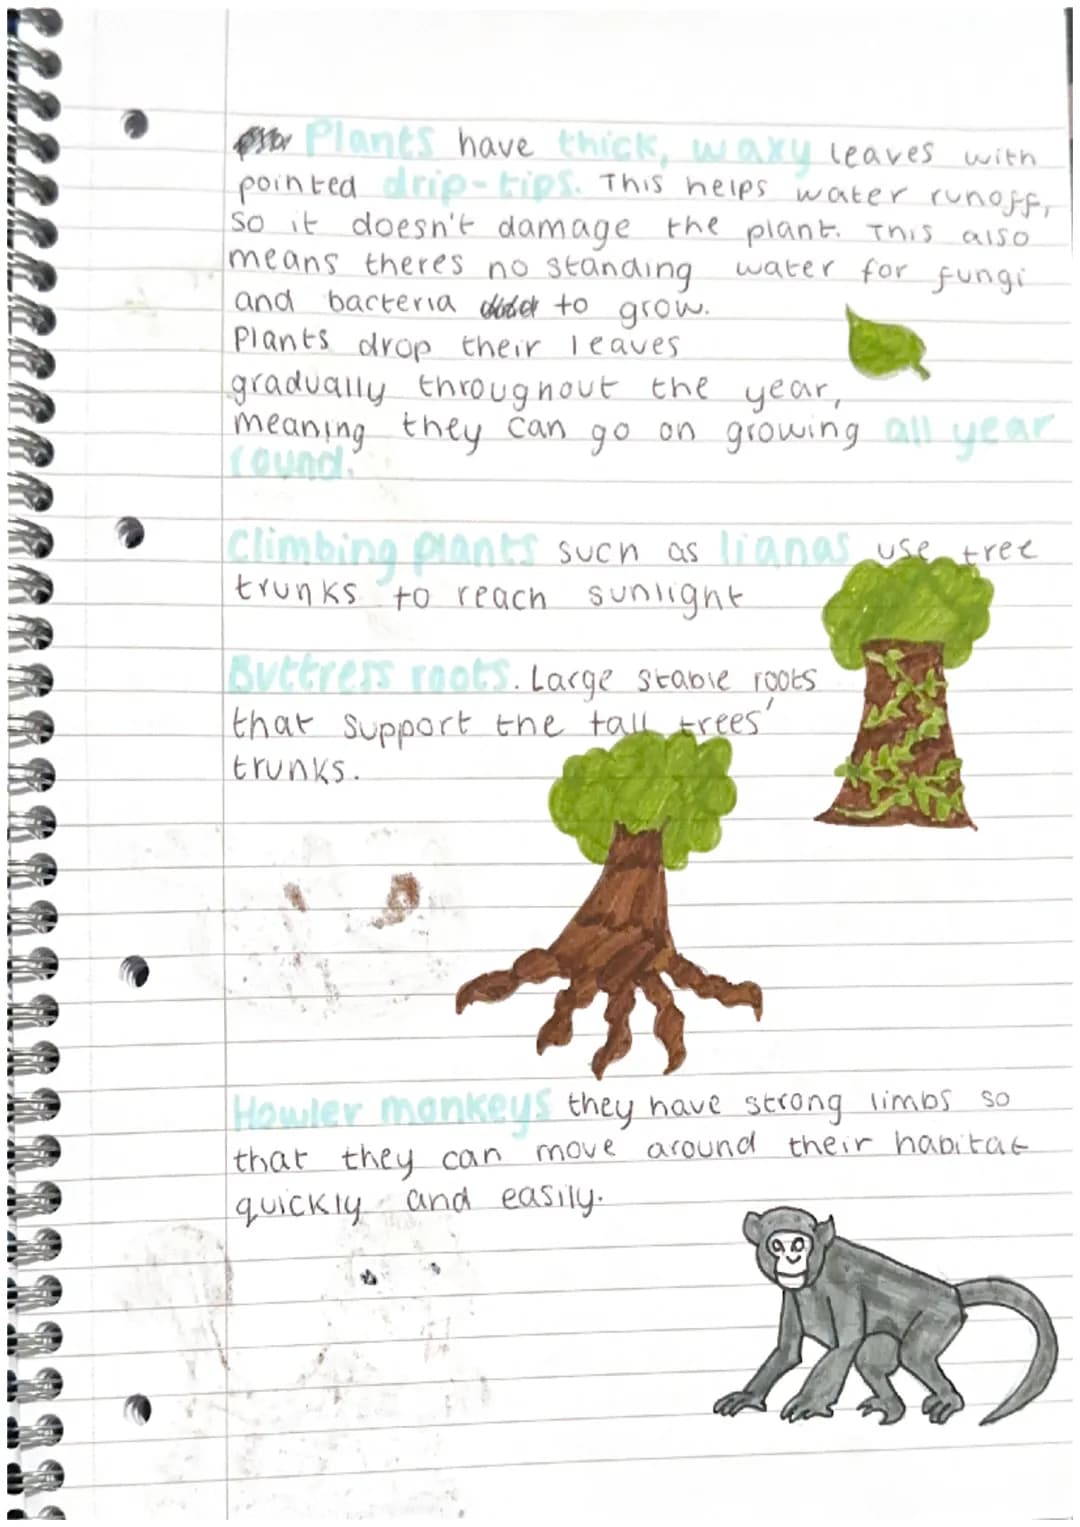 Plants have thick, waxy leaves with
pointed drip-tips. This helps water runoff,
so it doesn't damage the plant. This also
means theres no standing water for fungi
and bacteria to grow.
Plants drop their leaves
gradually throughout the year,
meaning they can go on growing all year
round.
Climbing plants such as lianas use tree
trunks to reach sunlight
Buttress roots. Large stable roots
that support the tall trees'
trunks.
Howler monkeys they have strong limbs so
that they can move around their habitat
quickly and easily.